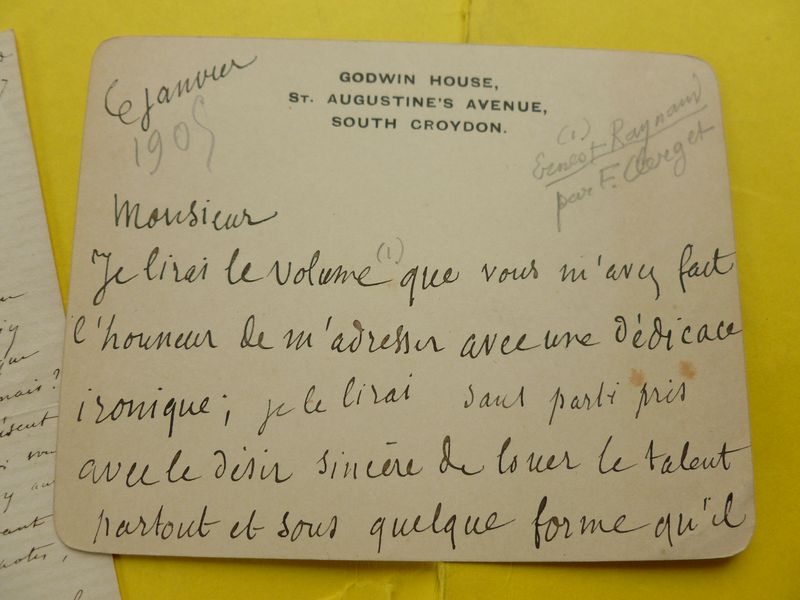 GODWIN HOUSE,
ST. AUGUSTINE'S AVENUE,
SOUTH CROYDON.
6 janvier
1905
(1)
Ernest Raynaud
par F. Clerget
Monsieur
Je lirai le volume (1) que vous m'avez fait
l'honneur de m'adresser avec une dédicace
ironique; je le lirai sans parti pris
avec le désir sincère de louer le talent
partout et sous quelque forme qu'il
mais?